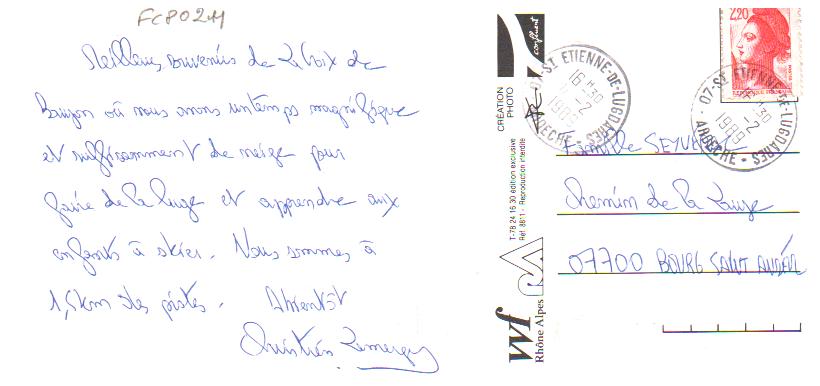 FC80211
Meilleurs souvenirs de La Croix de
Bauzon où nous avons un temps magnifique
et suffisamment de neige pour
faire de la luge et apprendre aux
enfants à skier. Nous sommes à
1,5km des pistes. A bientôt
Christian
CRÉATION PHOTO
confluent
T-78 24 16 30 édition exclusive
Réf. 8811 - Reproduction interdite
vvf
Rhône Alpes
07-ST ETIENNE-DE-LUGDARES
16H30
1989
ARDECHE
2,20
07-ST ETIENNE-DE-LUGDARES
1989
ARDECHE
Famille
Chemin de la
07700 BOURG SAINT ANDÉOL